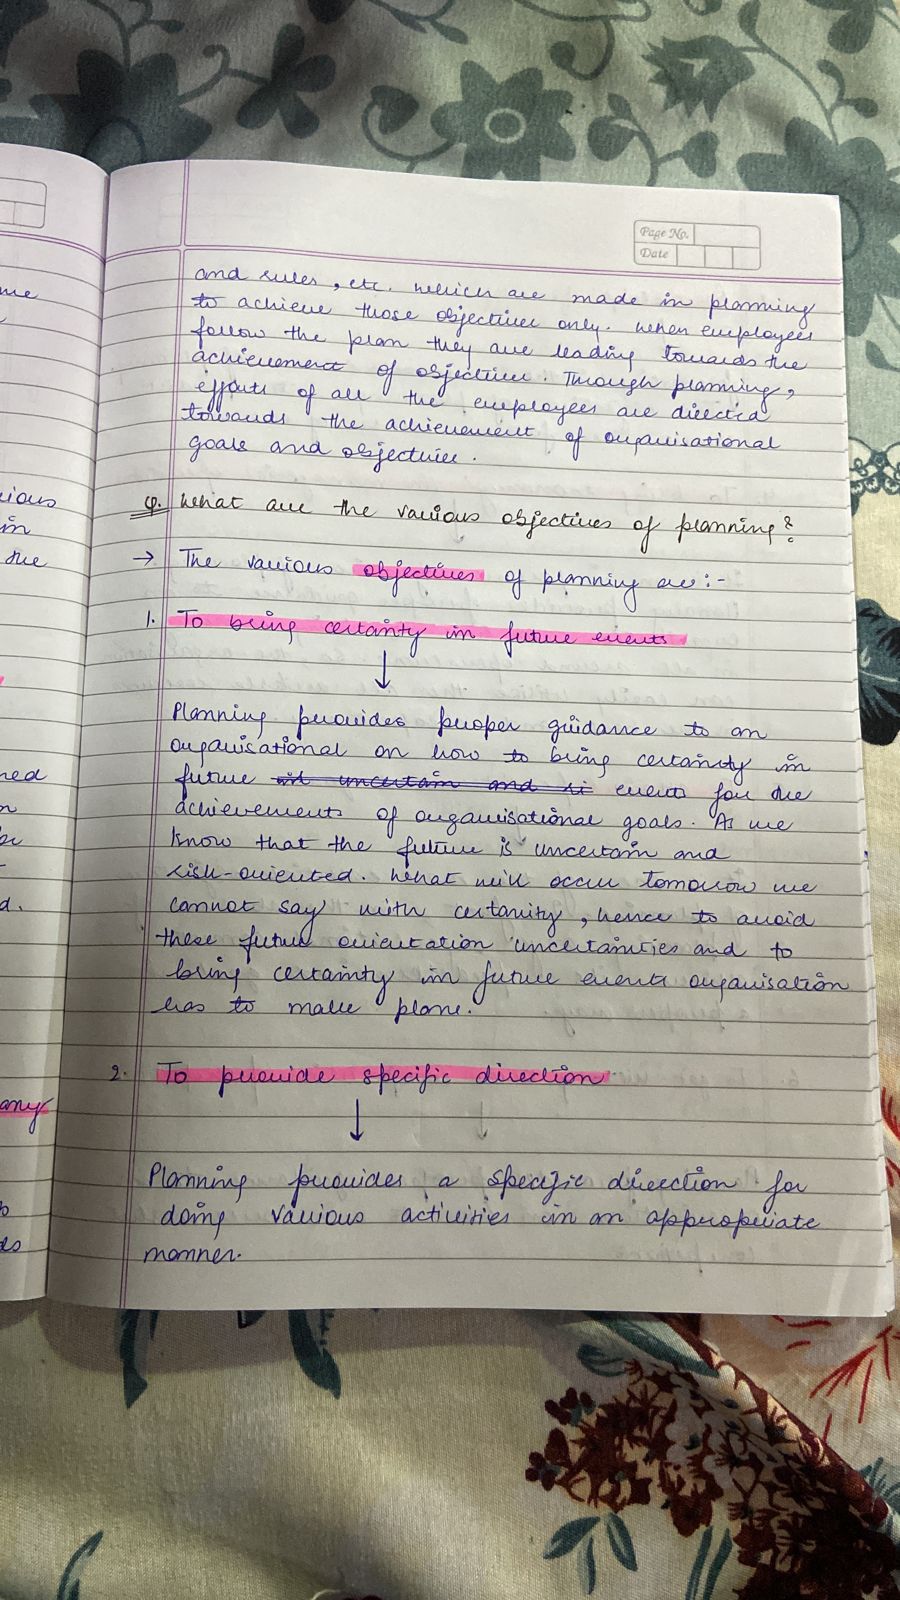 Page No.
Date
and rules, etc. which are made in planning
to achieve those objectives only. When employees
follow the plan they are leading towards the
achievement of objectives. Through planning,
efforts of all the employees are directed
towards the achievement of organisational
goals and objectives.
Q. What are the various objectives of planning?
→ The various objectives of planning are:-
1. To bring certanty in future events
↓
Planning provides proper guidance to an
organisational on how to bring certainty in
future events for the
achievements of organisational goals. As we
know that the future is uncertain and
risk-oriented. What will occur tomorrow we
cannot say with certanity, hence to avoid
these future orientation uncertainties and to
bring certainty in future events organisation
has to make plans.
2. To provide specific direction
↓
Planning provides a specific direction for
doing various activities in an appropriate
manner.
me
ious
in
the
ned
d.
any